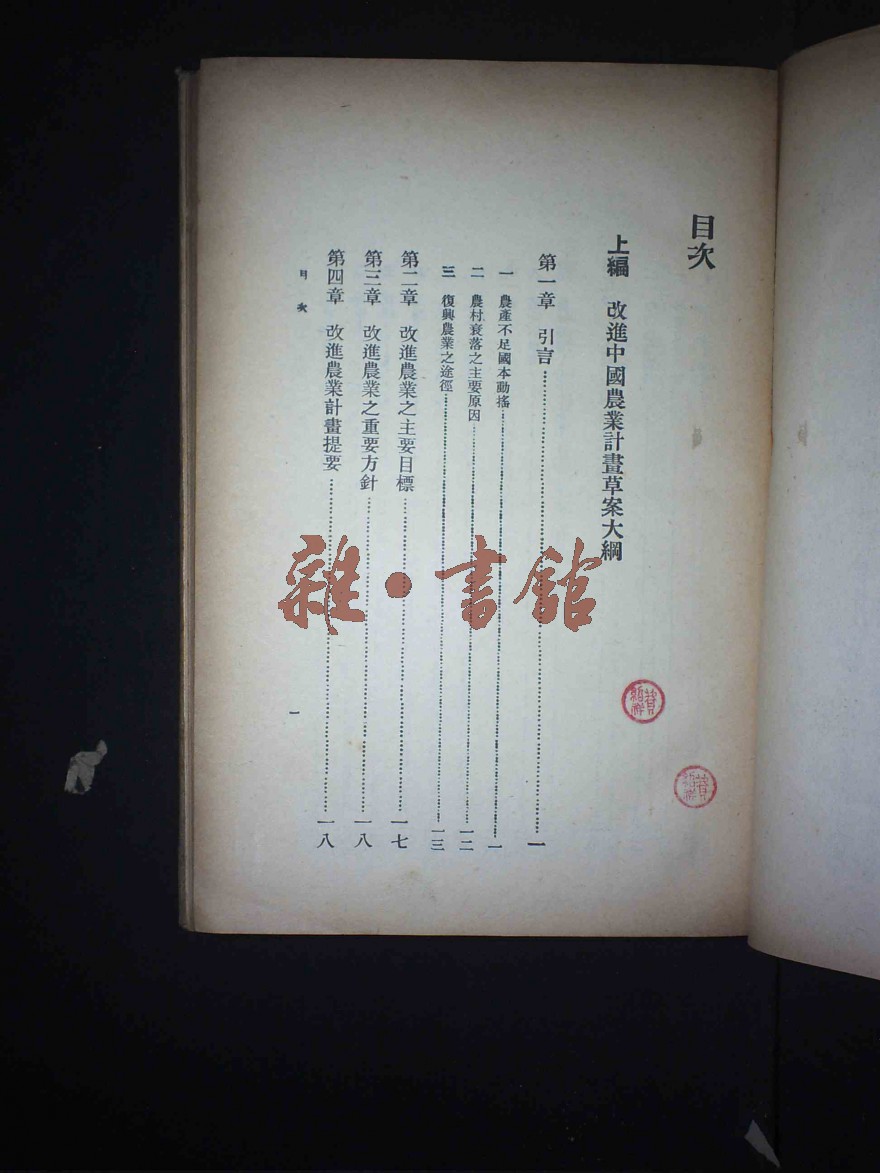 目次
上編 改進中國農業計畫草案大綱
第一章 引言……一
一 農產不足國本動搖……一
二 農村衰落之主要原因……一二
三 復興農業之途徑……一三
第二章 改進農業之主要目標……一七
第三章 改進農業之重要方針……一八
第四章 改進農業計畫提要……一八
目次
一
雜·書館